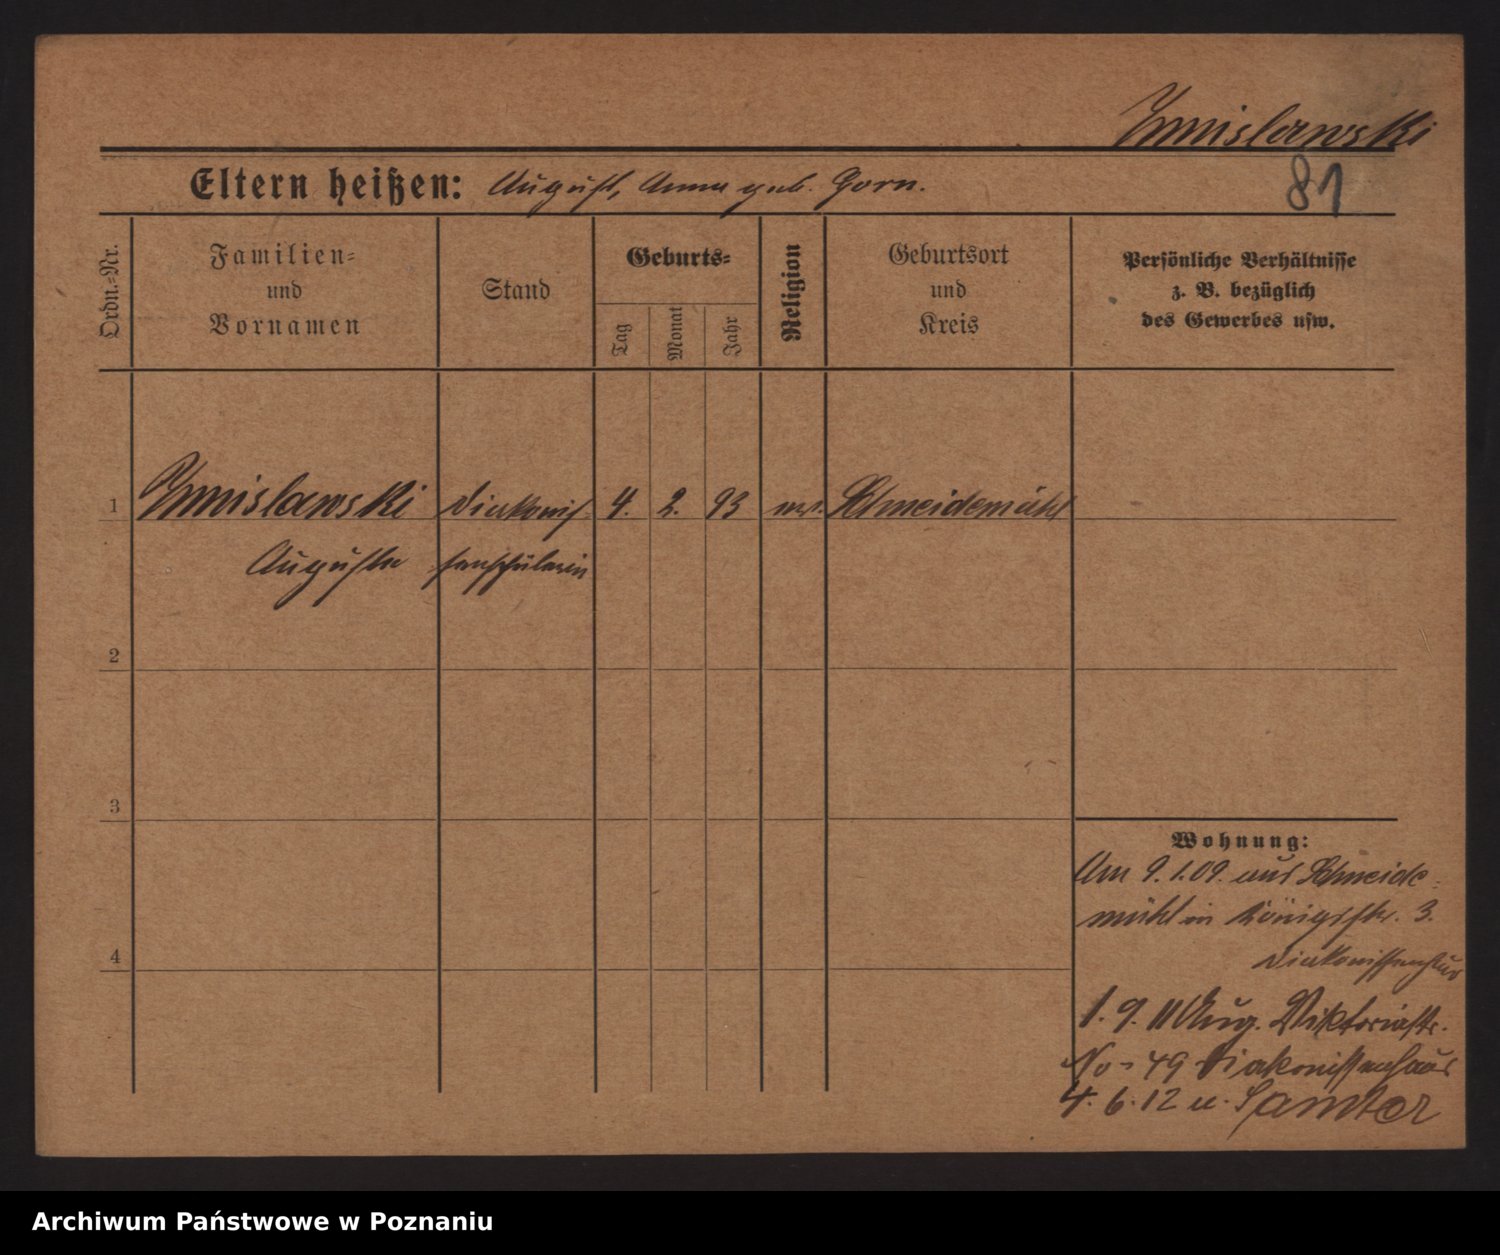 Ymnislawski
81
Eltern heißen: August, Anna geb. Gorn.
Ordn.-Nr.
Familien-
und
Vornamen
Stand
Geburts-
Tag
Monat
Jahr
Religion
Geburtsort
und
Kreis
Persönliche Verhältnisse
z. B. bezüglich
des Gewerbes usw.
1
Ymnislawski Diakonis 4. 2. 93 Schneidemühl
Auguste senschülerin
2
3
4
Wohnung:
Am 9.1.09. aus Schneide-
mühl in Königsstr. 3.
1.9.11 Aug. Viktoriastr.
No = 49 Diakonissenhaus
4.6.12 n. Samter
Archiwum Państwowe w Poznaniu